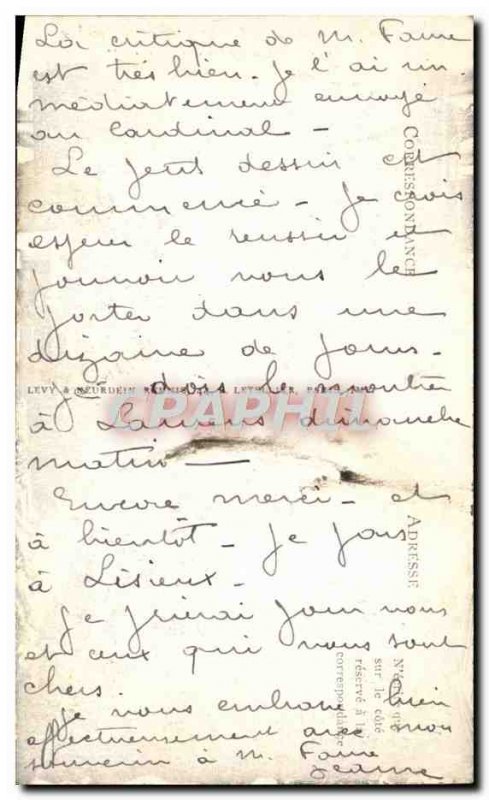 La critique de M. Faure
est très bien. Je l'ai im
médiatement envoyé
au Cardinal -
Le petit dessin est
commencé - Je crois
espérer le réussir et
pouvoir vous le
porter dans une
dizaine de jours -
je dois le montrer
à Laurens dimanche
matin -
Encore merci - et
à bientôt - Je pars
à Lisieux -
Je prierai pour vous
et ceux qui vous sont
chers.
Je vous embrasse bien
affectueusement avec mon
souvenir à M. Faure
Jeanne
CORRESPONDANCE
LEVY & NEURDEIN
CPAPHIL
ADRESSE
N'écrire que
sur le côté
réservé à la
correspondance